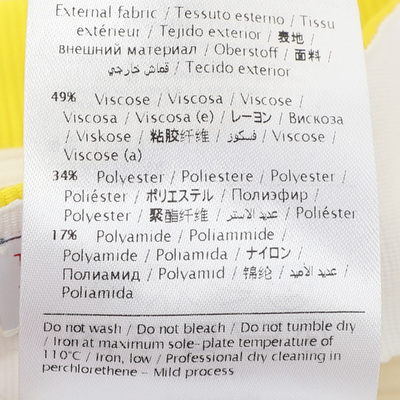 External fabric / Tessuto esterno / Tissu
extérieur / Tejido exterior / 表地 /
внешний материал / Oberstoff / 面料 /
قماش خارجي / Tecido exterior
49% Viscose / Viscosa / Viscose /
Viscosa / Viscosa (e) / レーヨン / Вискоза
/ Viskose / 粘胶纤维 / فسكوز / Viscose /
Viscose (a)
34% Polyester / Poliestere / Polyester /
Poliéster / ポリエステル / Полиэфир /
Polyester / 聚酯纤维 / عديد الاستر / Poliéster
17% Polyamide / Poliammide /
Polyamide / Poliamida / ナイロン /
Полиамид / Polyamid / 锦纶 / عديد الأميد /
Poliamida
Do not wash / Do not bleach / Do not tumble dry
/ Iron at maximum sole-plate temperature of
110°C / Iron, low / Professional dry cleaning in
perchlorethene - Mild process